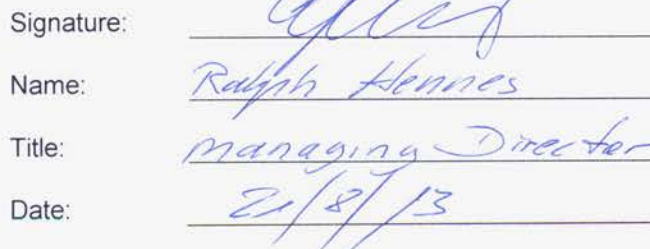 Signature:
Name: Ralph Hennes
Title: Managing Director
Date: 21/8/13